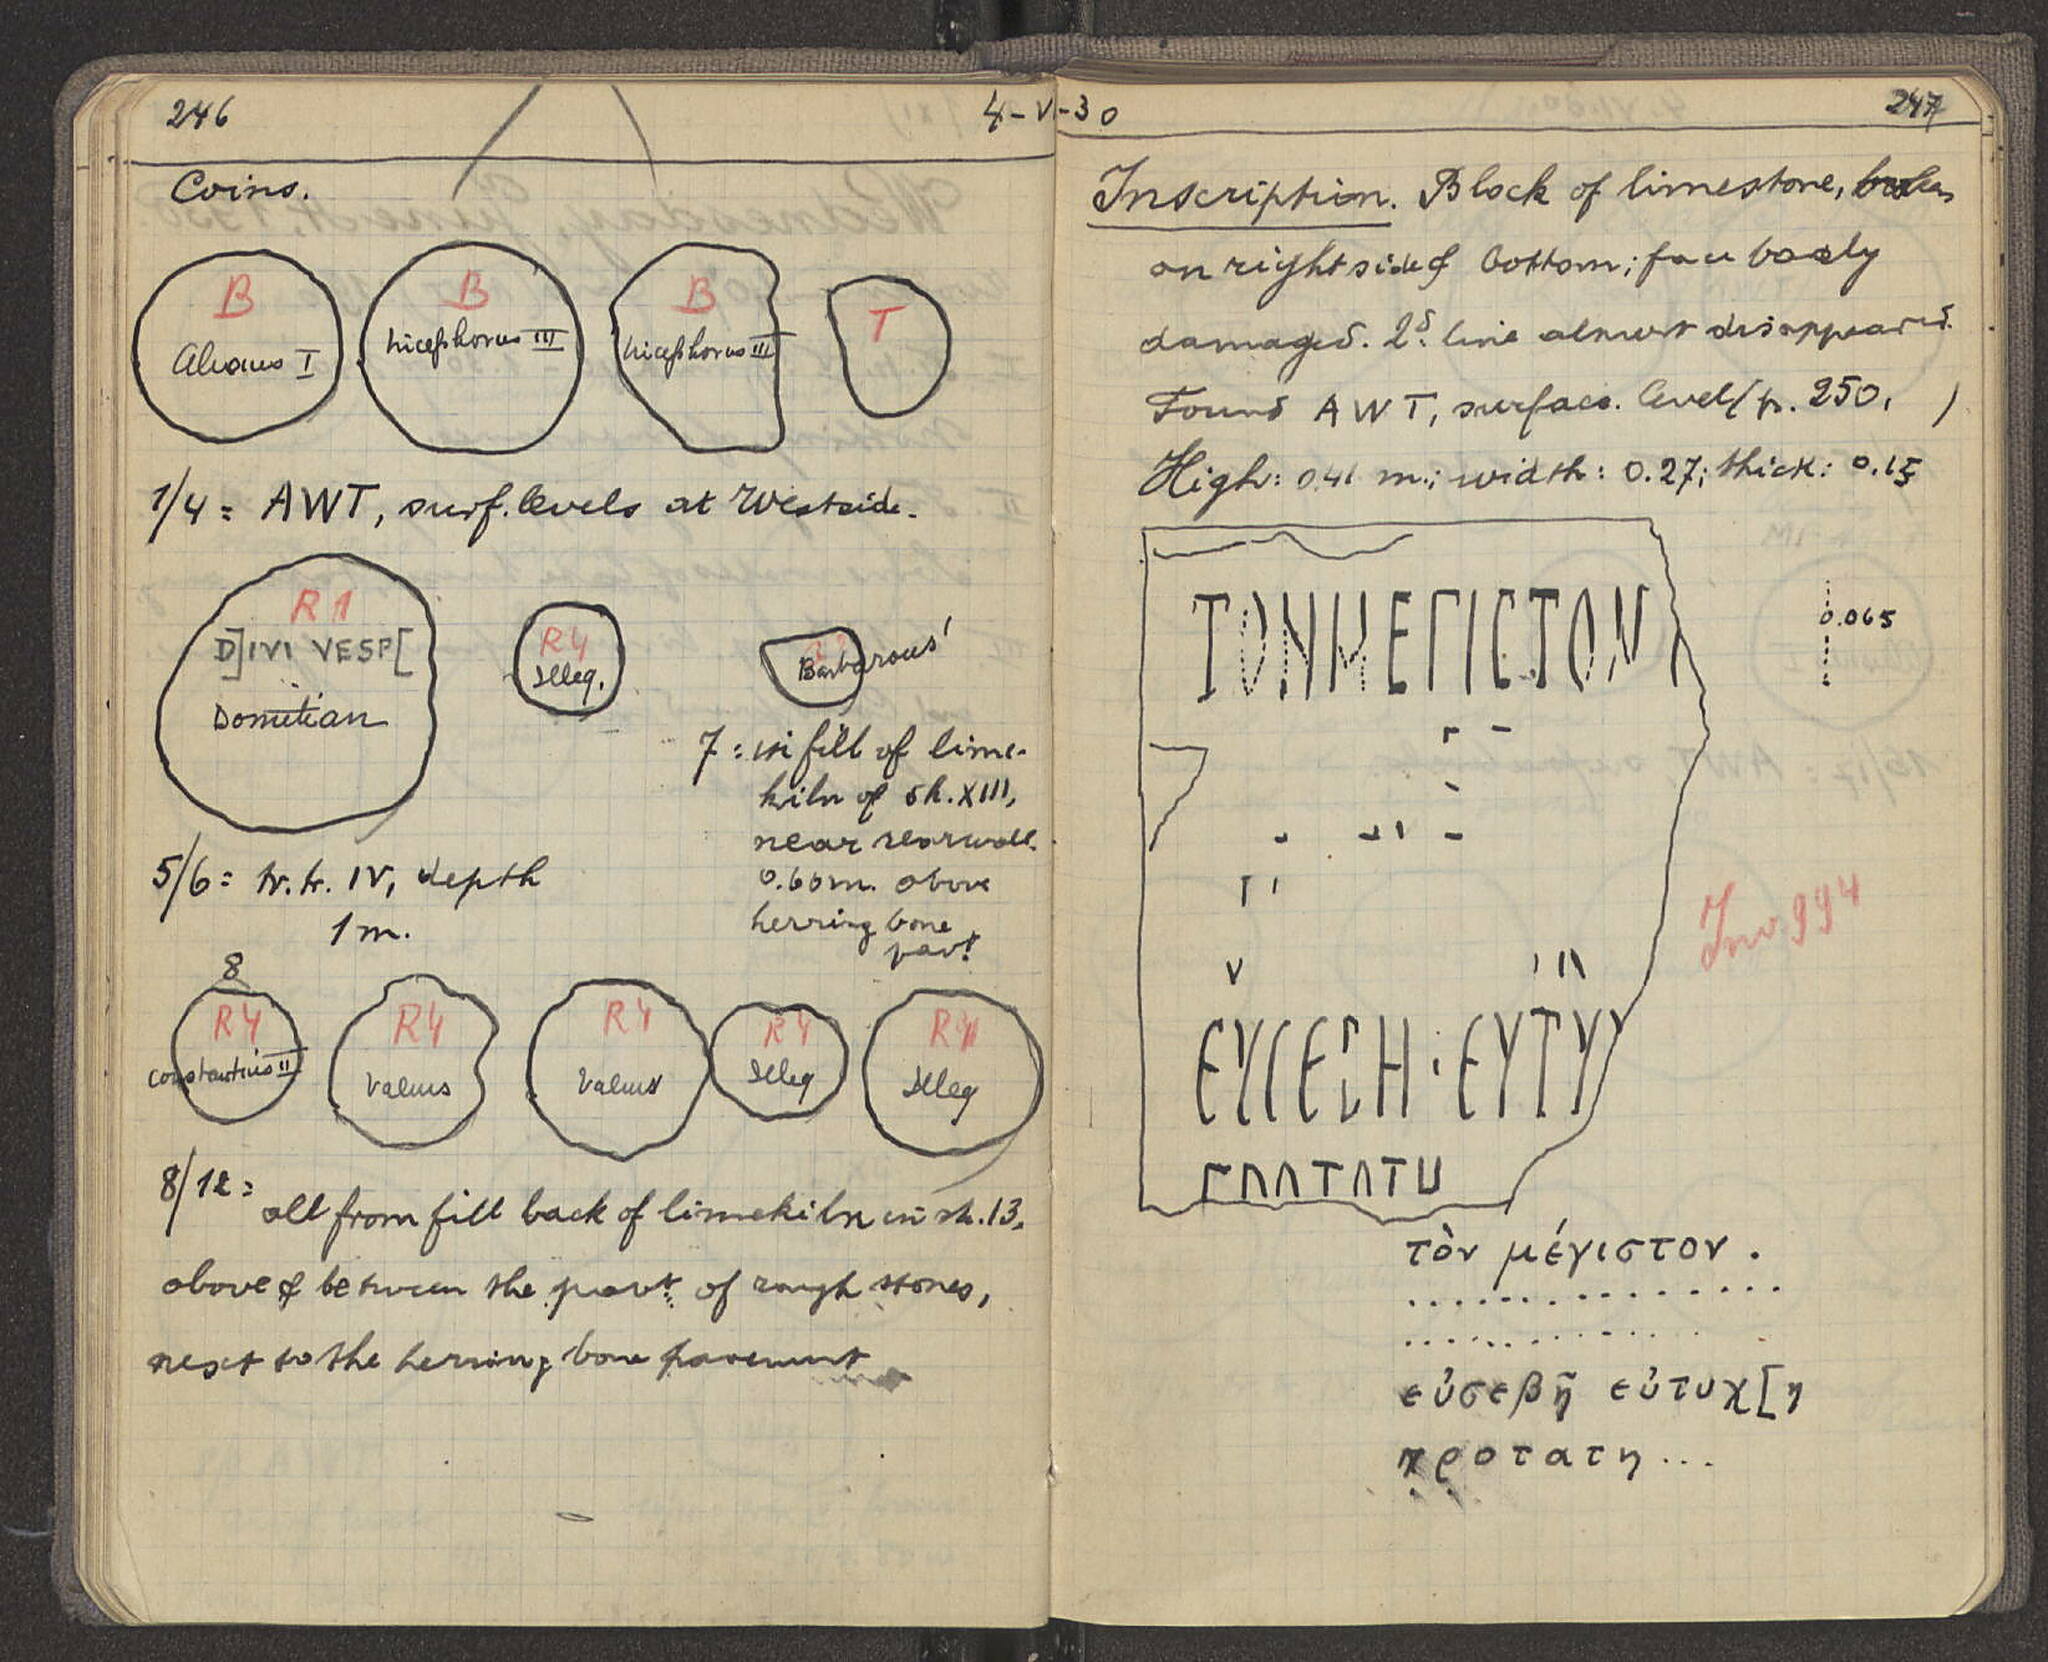 246
4-VI-30
Coins.
B
Alexius I
B
Nicephorus III
B
Nicephorus III
T
1/4 = AWT, surf. levels at Westside.
R1
D]IVI VESP[
Domitian
R4
Illeg.
Barbarous
7 = in fill of lime-
kiln of sh. XIII,
near rearwall.
0.60m. above
herring bone
pavt
5/6 = tr. tr. IV, depth
1 m.
8
R4
Constantius II
R4
Valens
R4
Valens
R4
Illeg
R4
Illeg
8/12 =
all from fill back of limekiln in sh. 13,
above & between the pavt. of rough stones,
next to the herring bone pavement
247
Inscription. Block of limestone, broken
on right side & bottom; face badly
damaged. 2d. line almost disappeared.
Found AWT, surface. level (p. 250, )
High: 0.41 m.; width: 0.27; thick: 0.15
ΤΟΝΜΕΓΙϹΤΟΝ
0.065
Inv 994
ΕΥϹΕΒΗ · ΕΥΤΥ
τὸν μέγιστον .
...............
.............
εὐσεβῆ εὐτυχ[η
προτατη ...